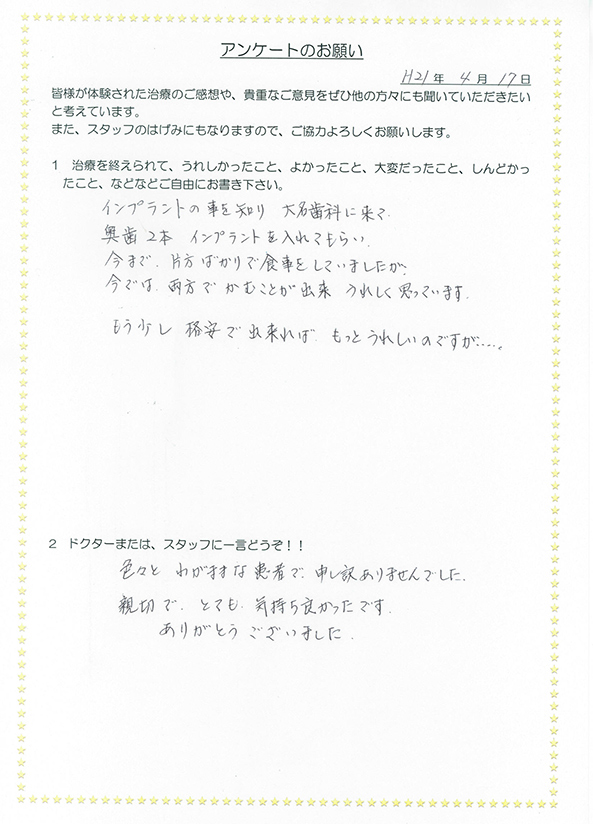 アンケートのお願い
H21年 4月 17日
皆様が体験された治療のご感想や、貴重なご意見をぜひ他の方々にも聞いていただきたい
と考えています。
また、スタッフのはげみにもなりますので、ご協力よろしくお願いします。
1 治療を終えられて、うれしかったこと、よかったこと、大変だったこと、しんどかっ
たこと、などなどご自由にお書き下さい。
インプラントの事を知り 大名歯科に来て
奥歯2本 インプラントを入れてもらい、
今まで、片方ばかりで食事をしていましたが、
今では、両方でかむことが出来 うれしく思っています。
もう少し 格安で出来れば、もっとうれしいのですが……。
2 ドクターまたは、スタッフに一言どうぞ！！
色々と わがままな患者で、申し訳ありませんでした。
親切で、とても、気持ち良かったです。
ありがとうございました。